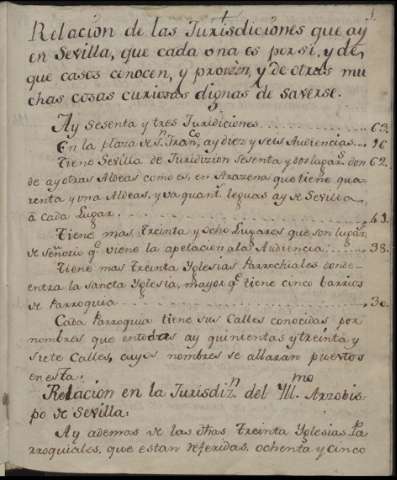 Relacion de las Jurisdiciones que ay
en Sevilla, que cada ona es per si, y de,
que casos conocen, y proveen, y de otras mu
chas cosas curiosas dignas de saverse.
Ay Sesenta y tres Juridiciones 63.
En la plaza de Sn. Franco. ay diez y seis Audiencias 16
Tiene Sevilla de Juridizion Sesenta y dos lugars. don 62.
de ay otras Aldeas como es, en Arazena que tiene qua
renta y una Aldeas, y va quant. leguas ay de Sevilla
à Cada Lugar 41.
Tiene mas treinta y ocho Lugares que son lugars.
de señorio qe. viene la apelacion ala Audiencia 38.
Tiene mas treinta Yglesias Parrochiales conse
entra la sancta Yglesia, mayor qe. tiene cinco barrios
de Parroquia 30.
Cada Parroquia tiene sus Calles conocidas por
nombres que entodas ay quinientas y treinta y
siete Calles, cuyos nombres se allaran puestos
en esta.
Relacion en la Jurisdizn. del Yllmo. Arzobis
po de Sevilla.
Ay ademas de las dhas Treinta Yglesias Pa
rroquiales, que estan referidas, ochenta y cinco